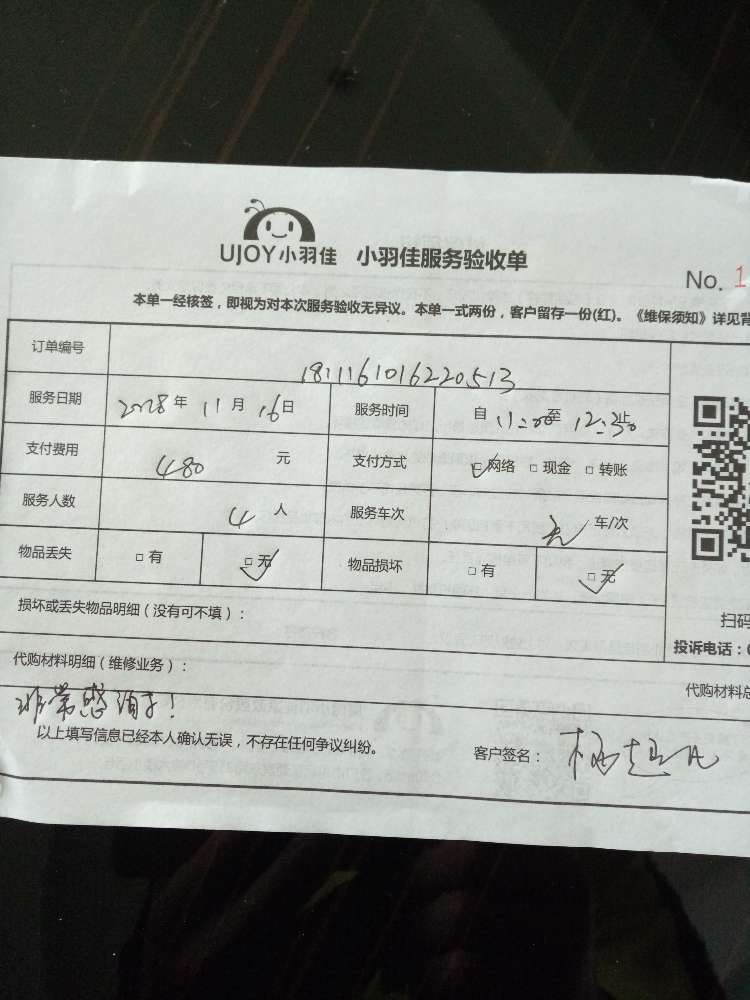 UJOY小羽佳 小羽佳服务验收单
No. 1
本单一经核签，即视为对本次服务验收无异议。本单一式两份，客户留存一份(红)。《维保须知》详见背
订单编号 1811161016220513
服务日期 2018年 11月 16日 服务时间 自 11:00至 12:30止
支付费用 480 元 支付方式 网络 现金 转账
服务人数 4 人 服务车次 无 车/次
物品丢失 有 无 物品损坏 有 无
损坏或丢失物品明细（没有可不填）：
扫码
投诉电话：0
代购材料明细（维修业务）： 代购材料总
非常感谢!
以上填写信息已经本人确认无误，不存在任何争议纠纷。 客户签名：